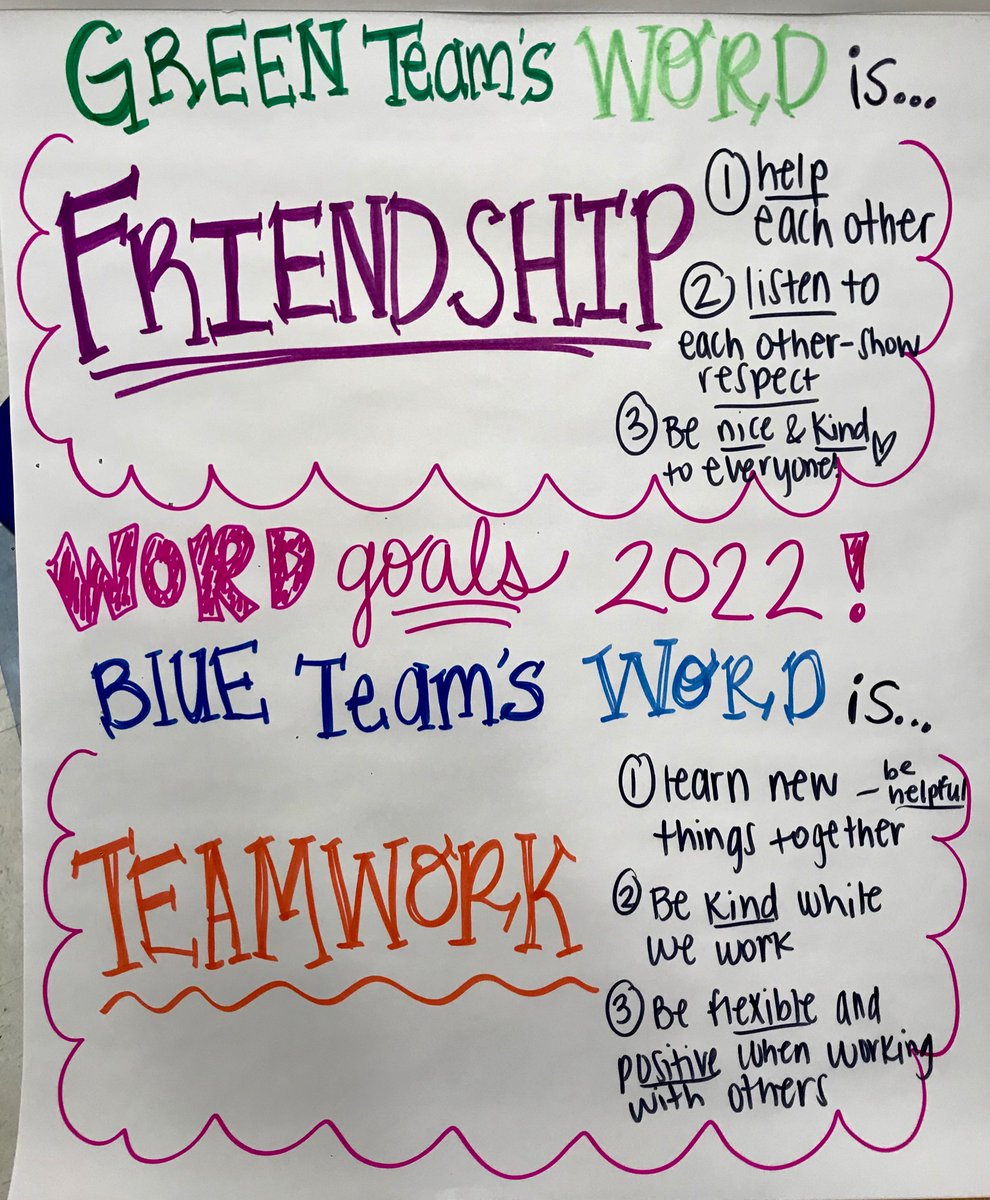 GREEN Team's WORD is...
FRIENDSHIP
① help
each other
② listen to
each other-show
respect
③ Be nice & kind ♡
to everyone!
WORD goals 2022!
BLUE Team's WORD is...
TEAMWORK
① learn new - be helpful
things together
② Be kind while
we work
③ Be flexible and
positive when working
with others